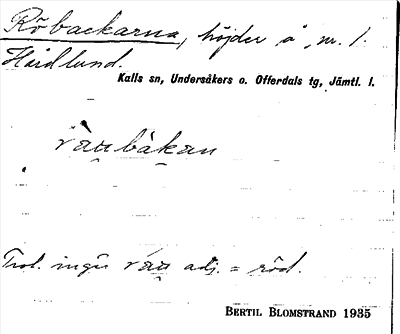 Röbackarna, höjder å nr. 1.
Hårdlund.
Kalls sn, Undersåkers o. Offerdals tg, Jämtl. l.
Trol. ingår adj. = röd.
BERTIL BLOMSTRAND 1935